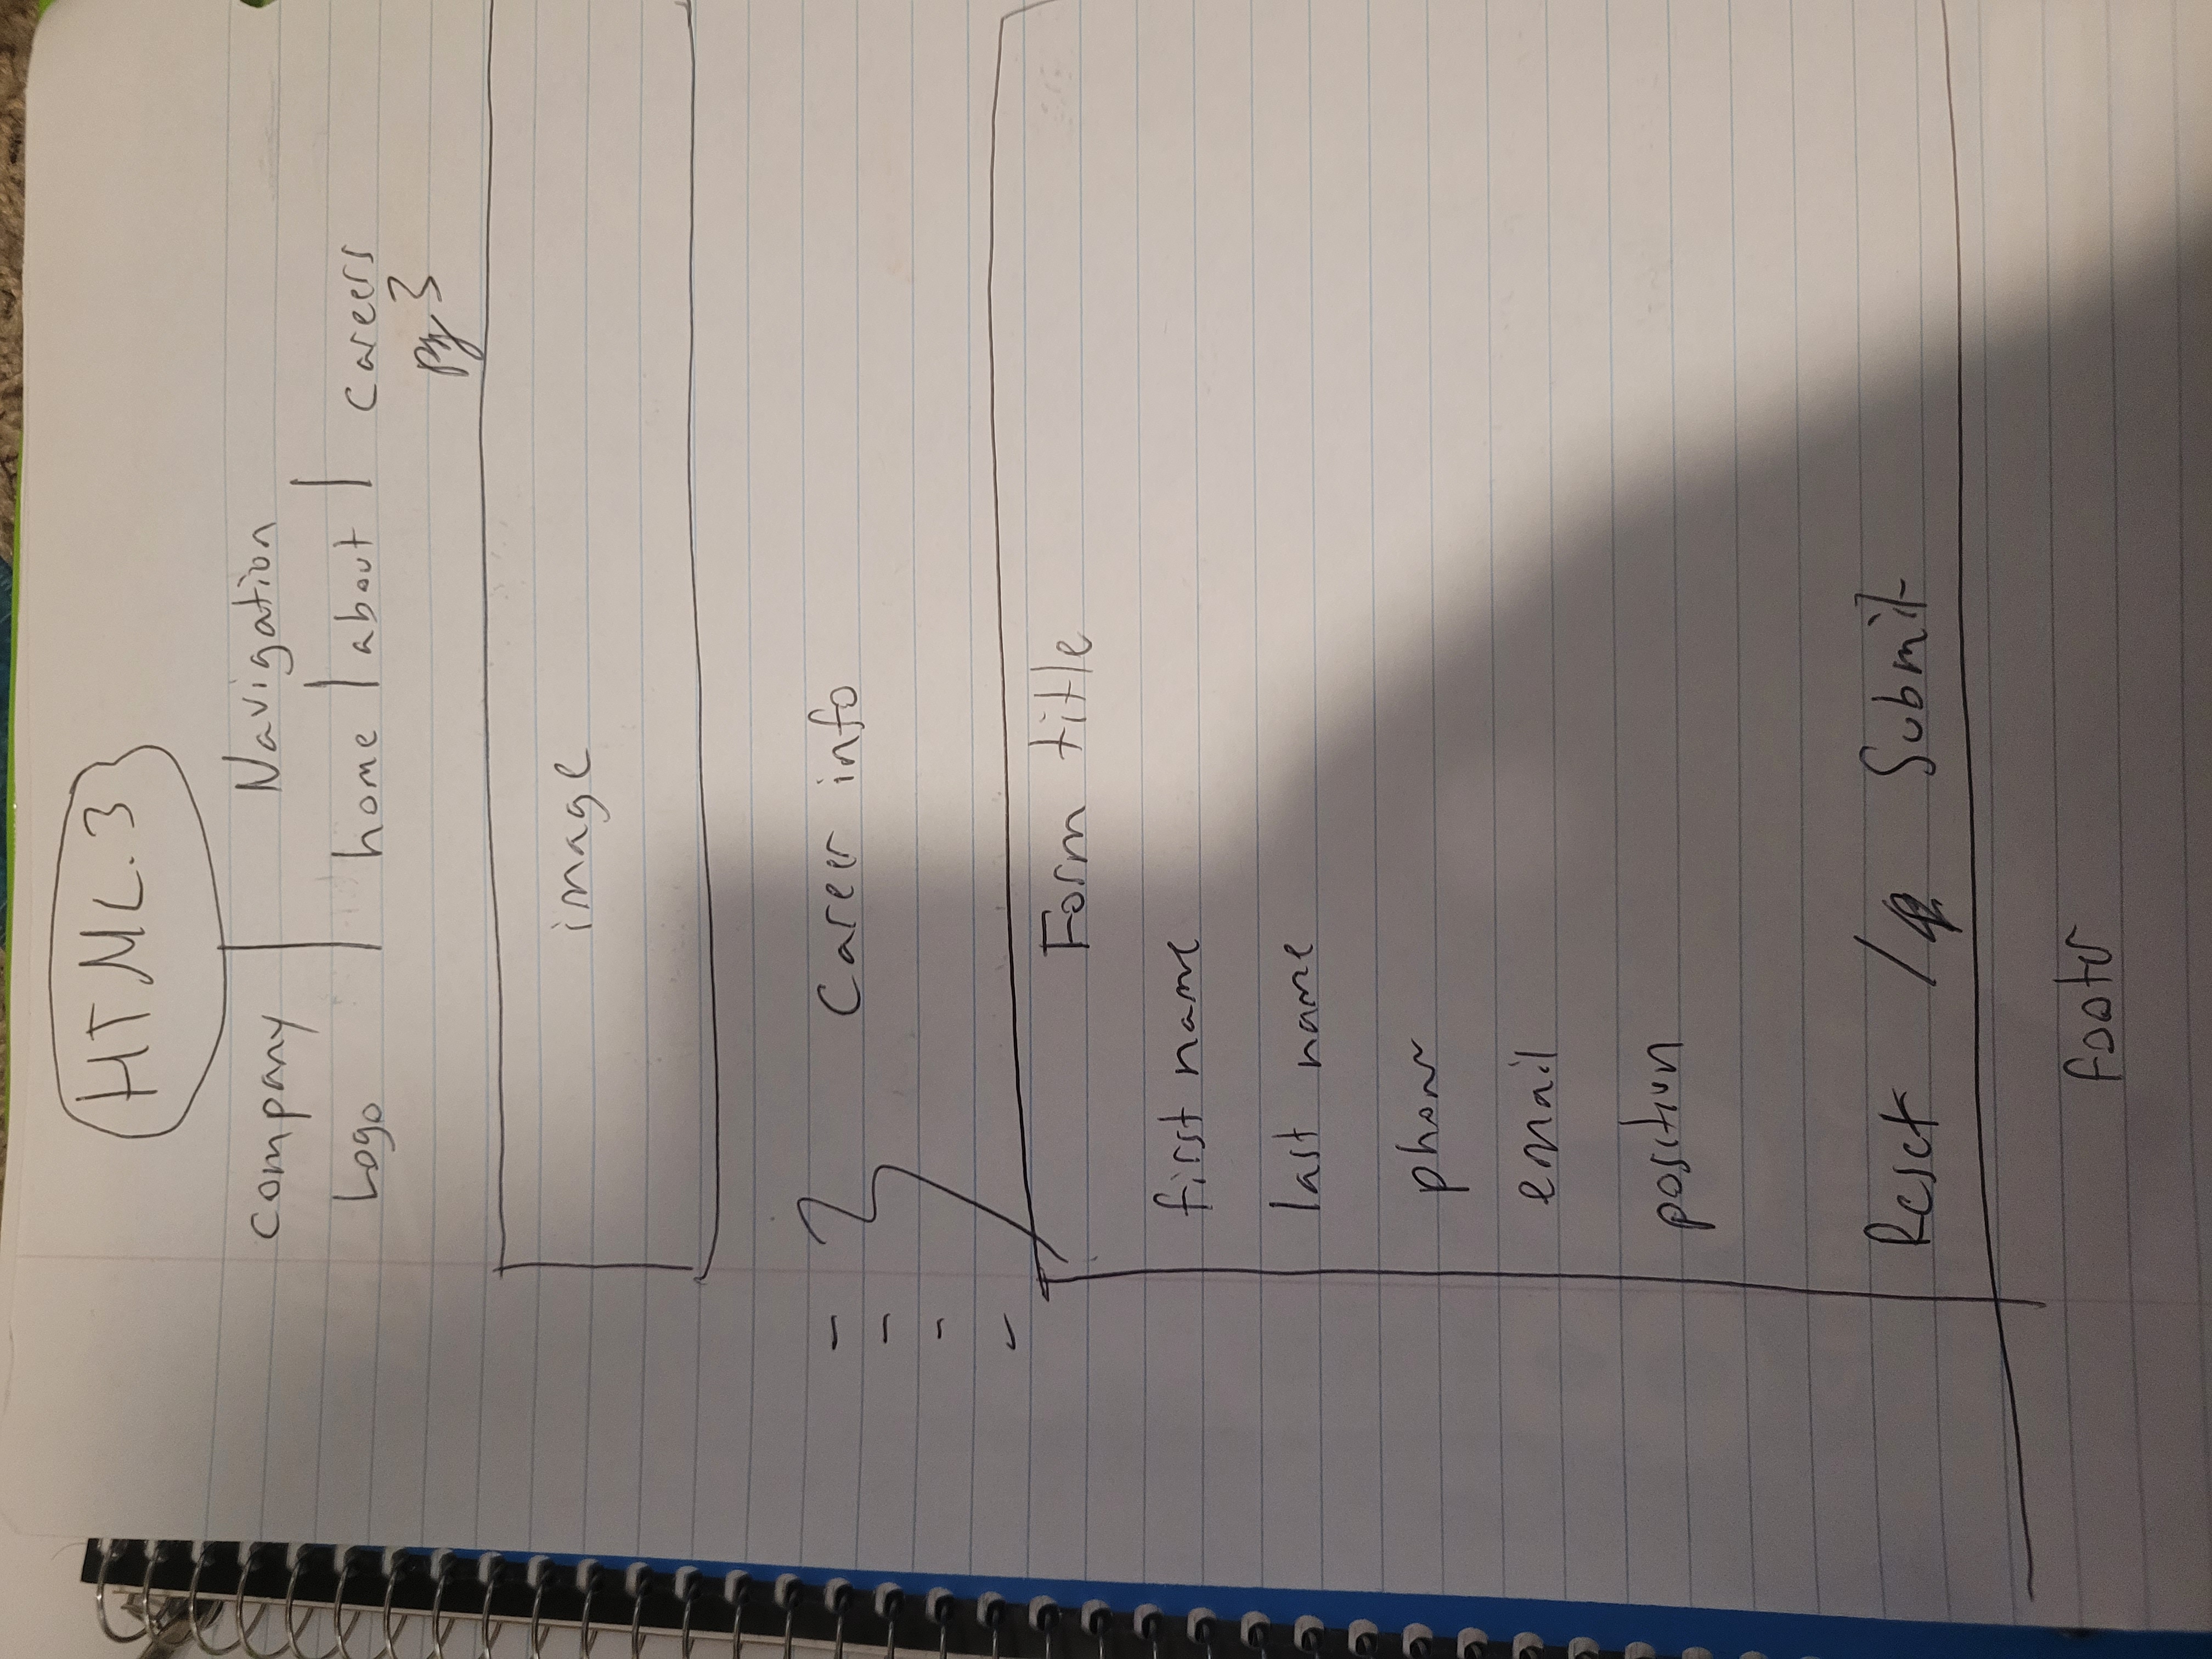 HTML.3
Company Navigation
Logo home | about | careers
pg 3
image
- Career info
-
-
-
Form title
first name
last name
phone
email
position
Reset / Submit
Footer